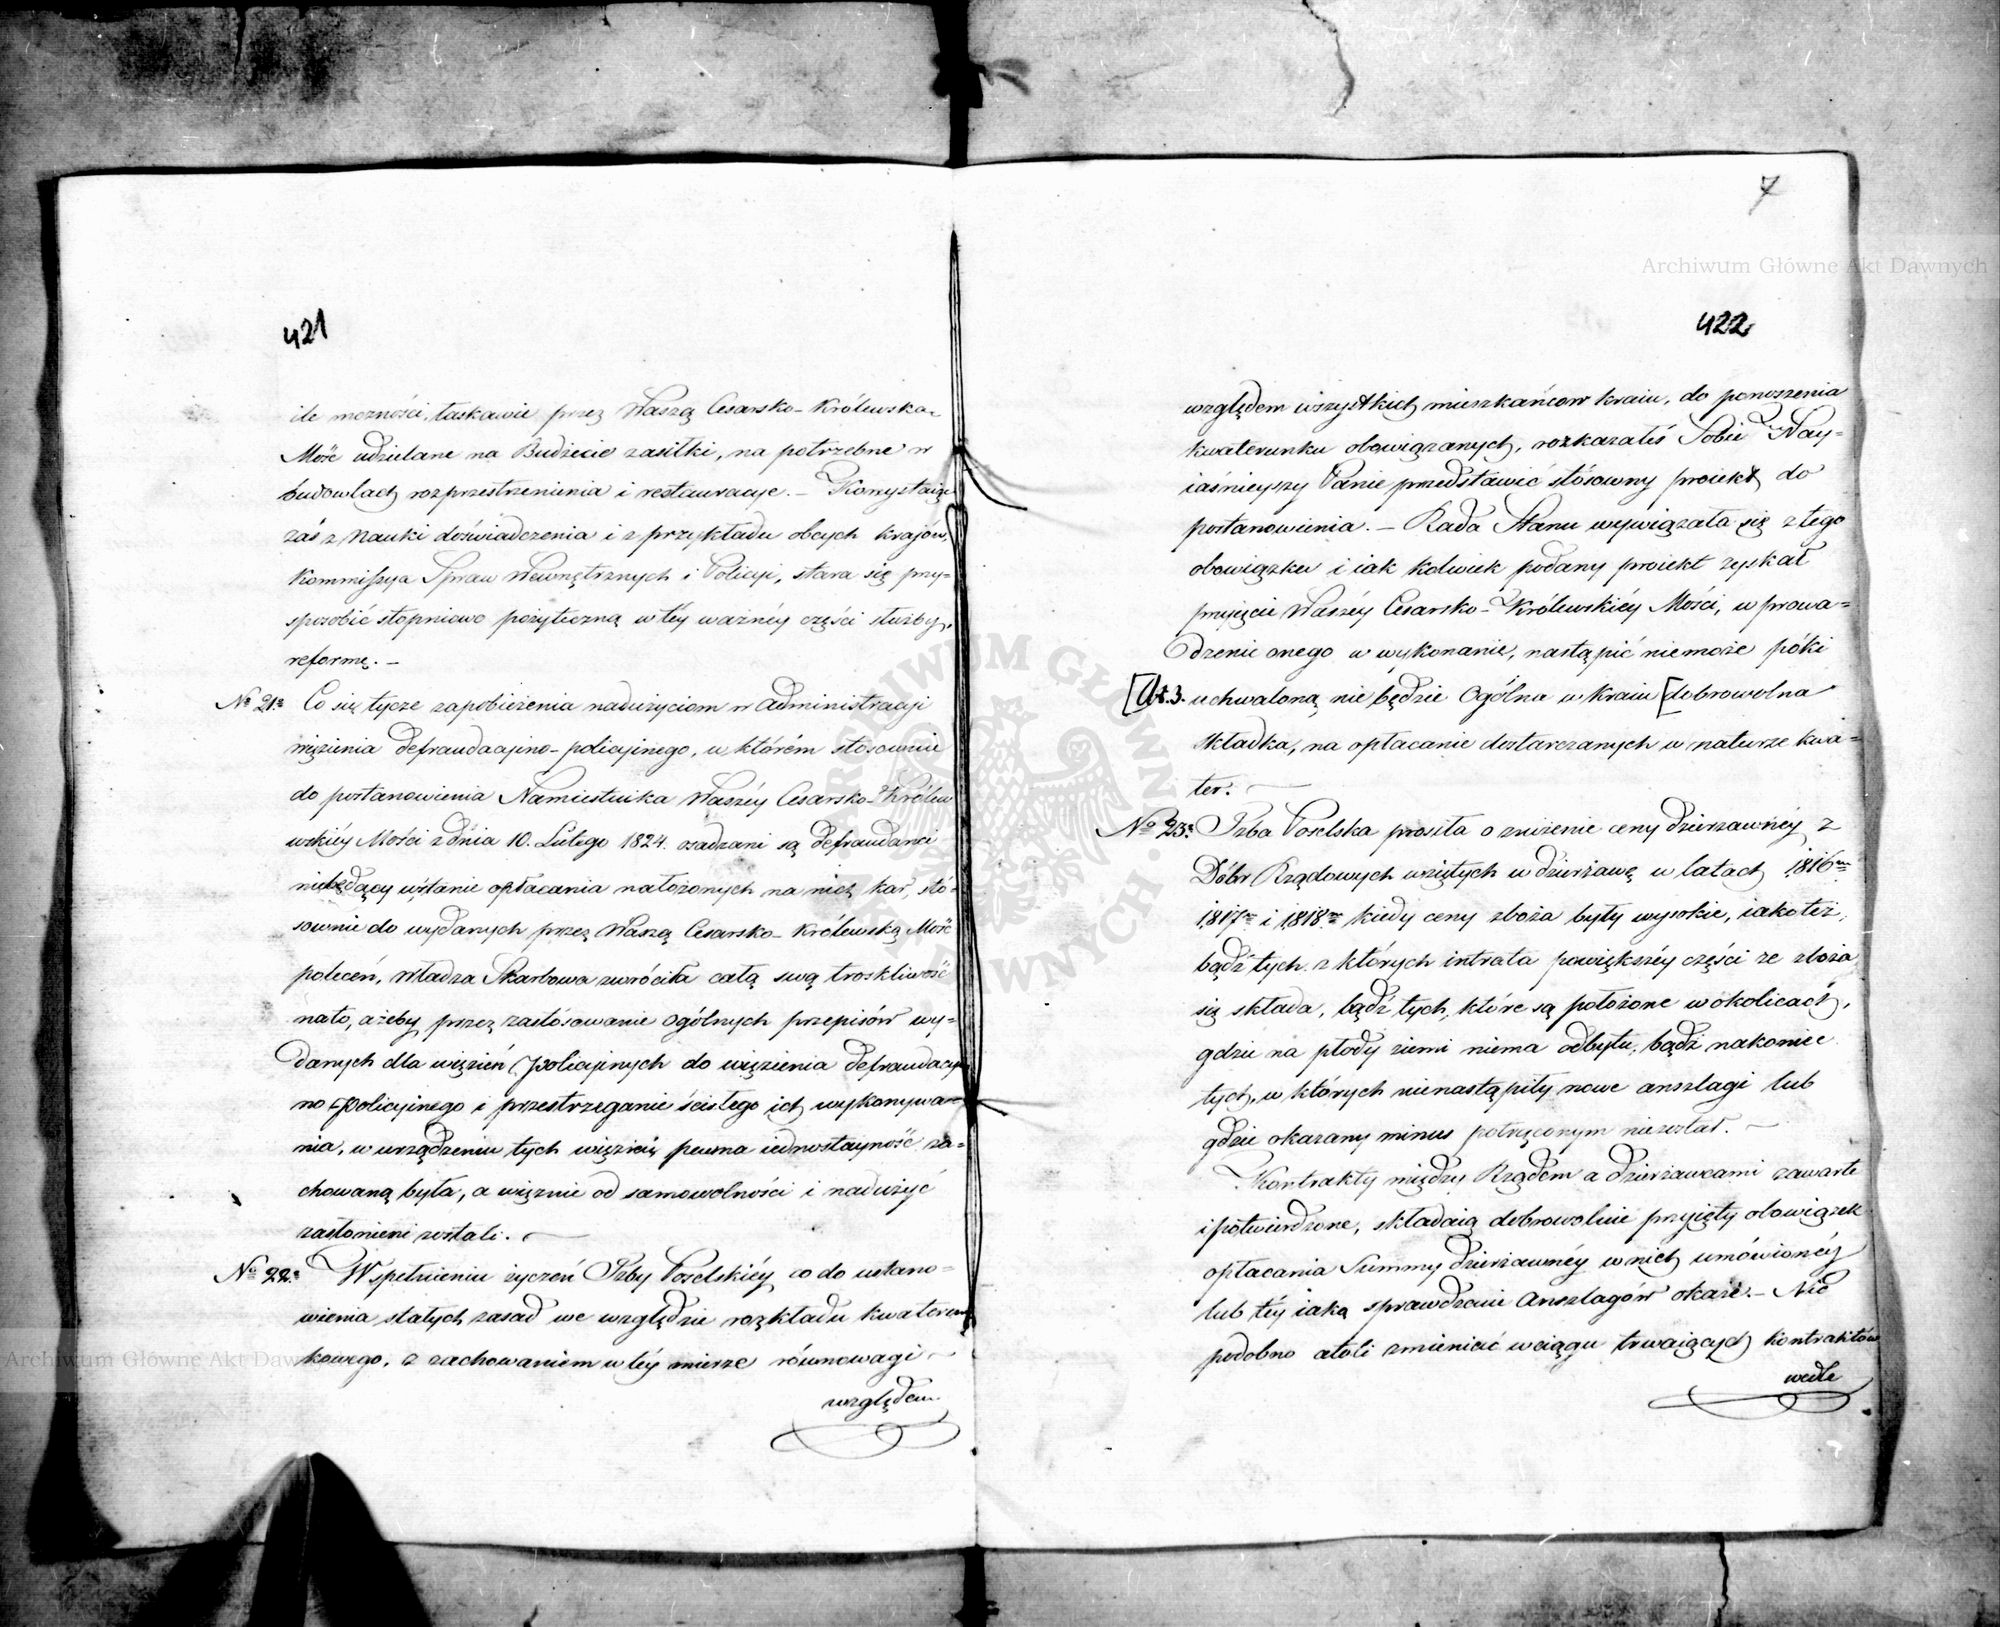 421
ile możności, łaskawie przez Waszą Cesarsko-Królewska
Mość udzielane na Budżecie zasiłki, na potrzebne w
budowlach rozprzestrzenienia i restauracye. – Korzystaiąc
zaś z nauki doświadczenia i z przykładu obcych krajów,
Kommissya Spraw Wewnętrznych i Policyi, stara się przy-
sposobić stopniowo pożyteczną w téy ważnéy części służby,
reformę. –
No 21o Co się tycze zapobieżenia nadużyciom w Administracyi
więzienia defraudacyino-policyinego, w którém stosownie
do postanowienia Namiestnika Waszéy Cesarsko-Królew
wskiéy Mości z dnia 10. Lutego 1824. osadzani są defraudanci
niebędący w stanie opłacania nałożonych na nich kar, stó-
sownie do wydanych przez Waszą Cesarsko-Królewską Mość
poleceń, Władza Skarbowa zwróciła całą swą troskliwość
na to, ażeby przez zastósowanie ogólnych przepisów wy-
danych dla więzień policyinych do więzienia defraudacyi
no-policyinego i przestrzeganie ścisłego ich wykonywa-
nia, w urządzeniu tych więzień pewna iednostayność za-
chowaną była, a więźnie od samowolności i nadużyć
zasłonieni zostali. –
No 22o W spełnieniu życzeń Izby Poselskiéy co do ustano-
wienia stałych zasad we względzie rozkładu kwaterun
kowego, z zachowaniem w téy mierze równowagi
względem
7
422
względem wszystkich mieszkańcow kraiu, do ponoszenia
kwaterunku obowiązanych, rozkazałeś Sobie Nay-
iaśnieyszy Panie przedstawić stósowny proiekt do
postanowienia. – Rada Stanu wywiązała się z tego
obowiązku i iak kolwiek podany proiekt zyskał
przyięcie Waszéy Cesarsko-Królewskiéy Mości, w prowa-
dzenie onego w wykonanie, nastąpić niemoże póki
[At. 3. uchwaloną nie będzie Ogólna w Kraiu [dobrowolna
składka, na opłacanie dostarczanych w naturze kwa-
ter. –
No 23o Izba Poselska prosiła o zniżenie ceny dzierżawnéy z
Dóbr Rządowych wziętych w dzierżawę w latach 1816m
1817m i 1818m kiedy ceny zboża były wysokie, iako też,
bądź tych z których intrata powiększéy części ze zboża
się składa, bądź tych, które są położone w okolicach,
gdzie na płody ziemi niema odbytu, bądź nakoniec
tych, w których nienastąpiły nowe anszlagi lub
gdzie okazany minus potrąconym niezostał. –
Kontrakty między Rządem a dzierżawcami zawarte
i potwierdzone, składaią dobrowolnie przyięty obowiązek
opłacania Summy dzierżawnéy w nich umówionéy
lub téy iaką sprawdzenie Anszlagów okaże. – Nie
podobno atoli zmieniać w ciągu trwaiących kontraktów
wedle
Archiwum Główne Akt Dawnych